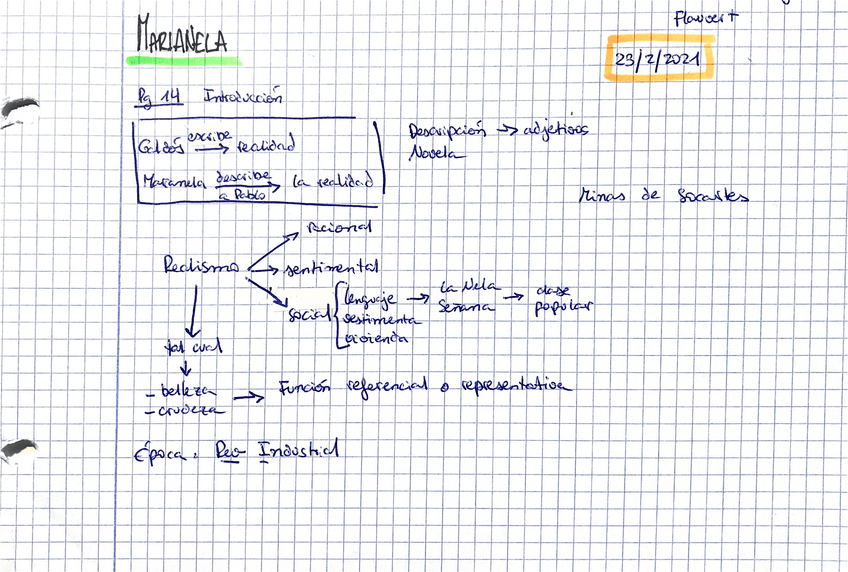 Flavert
MARIANELA
23/2/2021
Pg 14 Introducción
Galdós escribe → realidad
Descripción → adjetivos
Novela
Marianela describe a Pablo → la realidad
Minas de Socartes
racional
Realismo → sentimental
social
lenguaje → la Nela → clase
vestimenta Señana popular
vivienda
tal cual
- belleza → Función referencial o representativa
- crudeza
Época. Rev Industrial